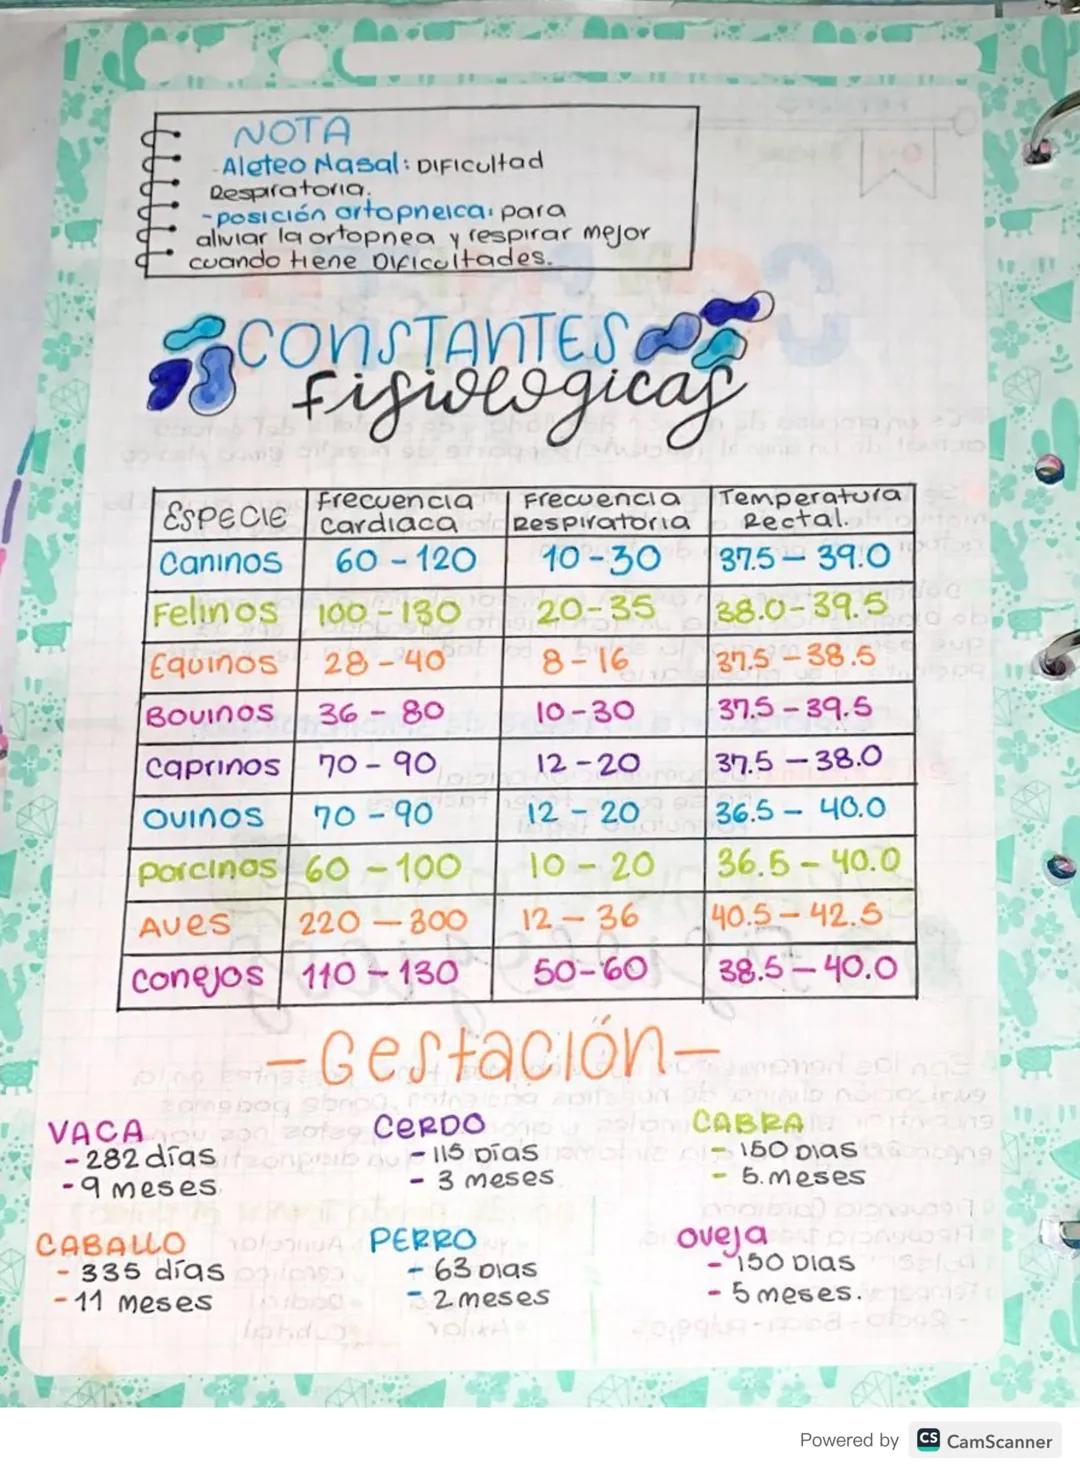 NOTA
-Aleteo Nasal: Dificultad
Respiratoria.
-posición ortopneica: para
aliviar la ortopnea y respirar mejor
cuando tiene Dificultades.
CONSTANTES
fisiologicas
ESPECIE | Frecuencia Cardiaca | Frecuencia Respiratoria | Temperatura Rectal.
Caninos 60 - 120 10 - 30 37.5 - 39.0
Felinos 100 - 130 20 - 35 38.0 - 39.5
Equinos 28 - 40 8 - 16 37.5 - 38.5
Bovinos 36 - 80 10 - 30 37.5 - 39.5
Caprinos 70 - 90 12 - 20 37.5 - 38.0
Ovinos 70 - 90 12 - 20 36.5 - 40.0
Porcinos 60 - 100 10 - 20 36.5 - 40.0
Aves 220 - 300 12 - 36 40.5 - 42.5
Conejos 110 - 130 50 - 60 38.5 - 40.0
- Gestación -
VACA
- 282 días
- 9 meses
CERDO
- 115 Días
- 3 meses
CABRA
- 150 Dias
- 5.meses
CABALLO
- 335 días
- 11 meses
PERRO
- 63 Dias
- 2 meses
oveja
- 150 Dias
- 5 meses.
Powered by CS CamScanner